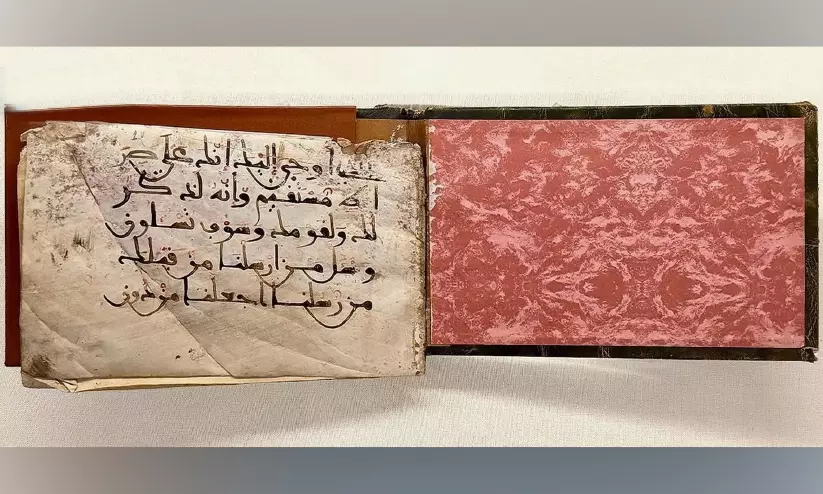 اوحي إليك إنك على صر
اط مستقيم وإنه لذكر
لك ولقومك وسوف تسلون
وسل من ارسلنا من قبلك
من رسلنا اجعلنا من دون